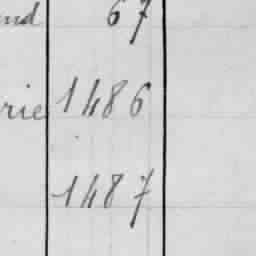 nd 67
rie 1486
1487